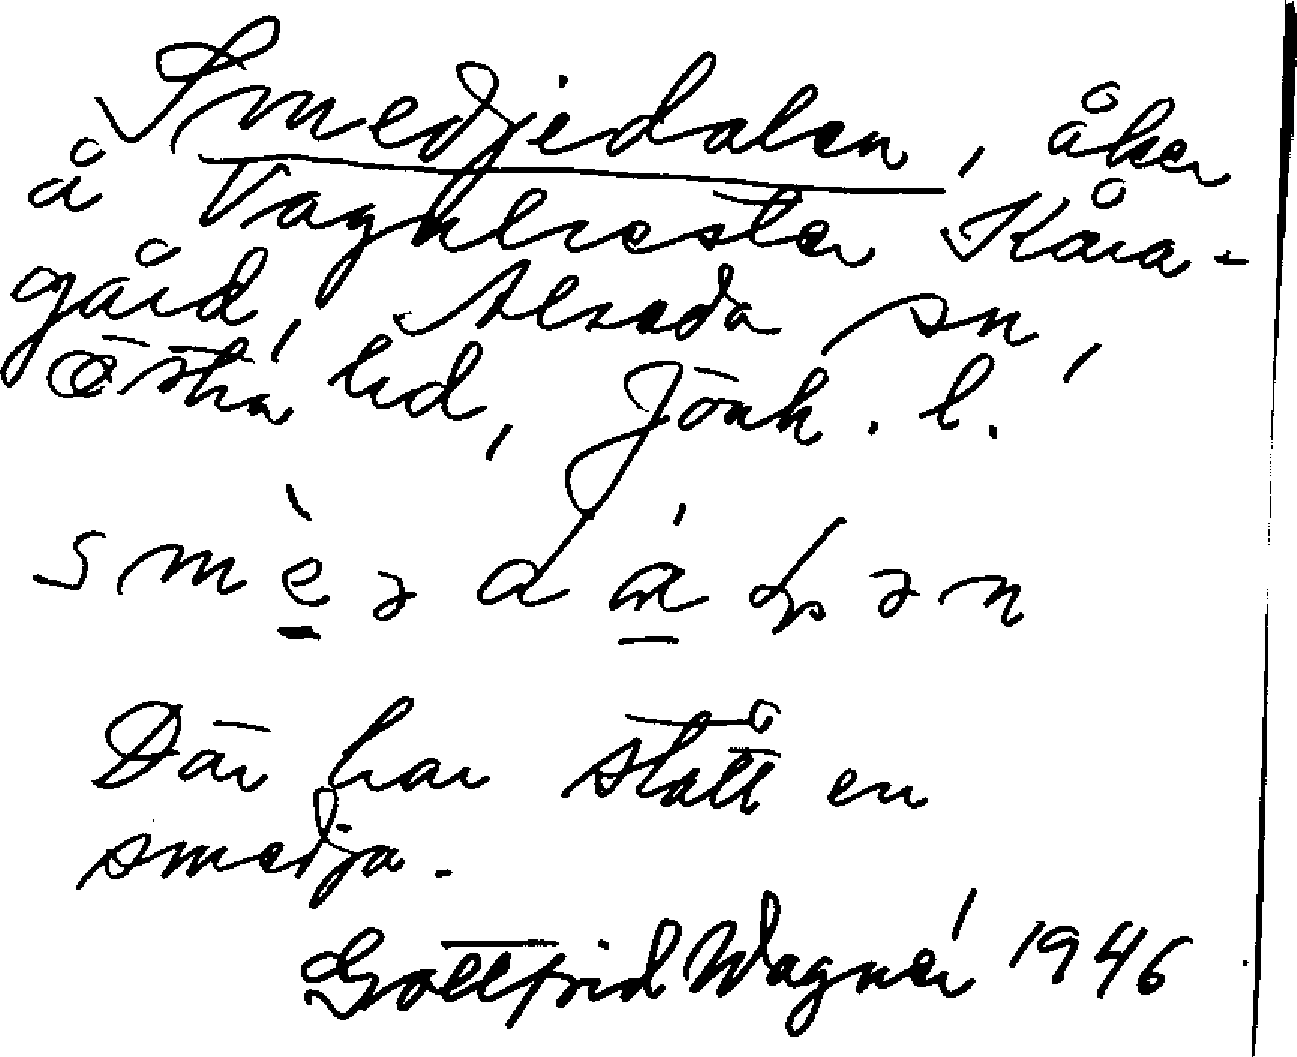 Smedjedalen, åker
å Vagnhester Kåra-
gård, Alseda sn,
Östra hd, Jönk. l.
Där har stått en
smedja.
Gottfrid Wagnér 1946